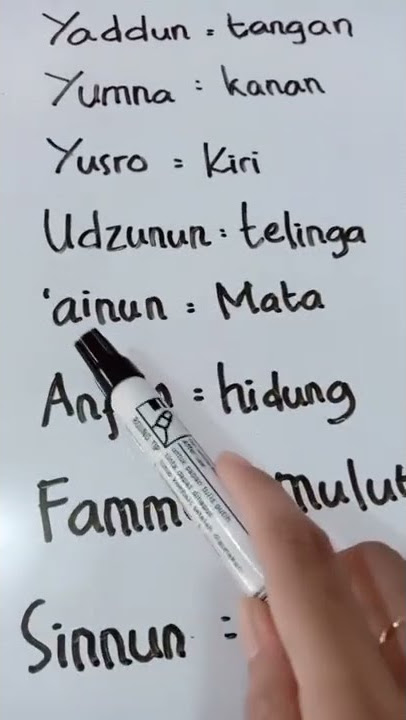 Yaddun = tangan
Yumna = kanan
Yusro = Kiri
Udzunun = telinga
'ainun = Mata
= hidung
mulut
Sinnun =